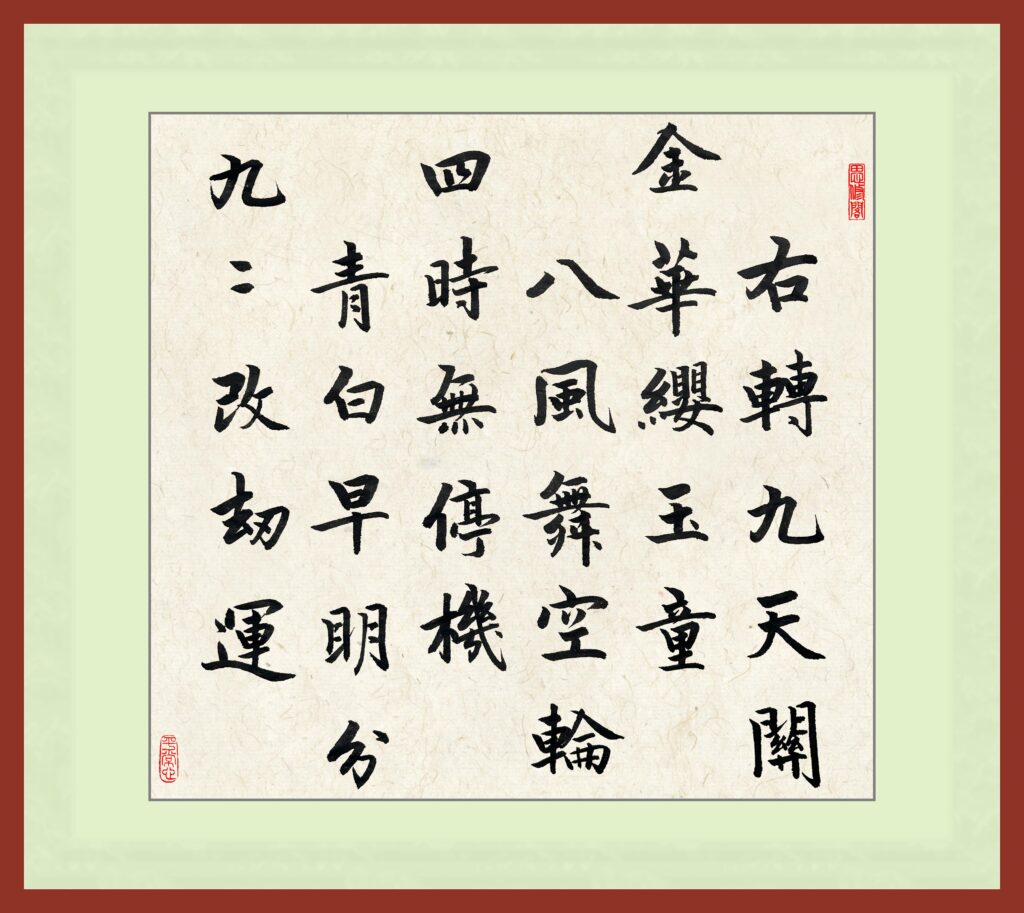 思修閣
右轉九天關
金華纓玉童
八風舞空輪
四時無停機
青白早明分
九〻改劫運
平常心